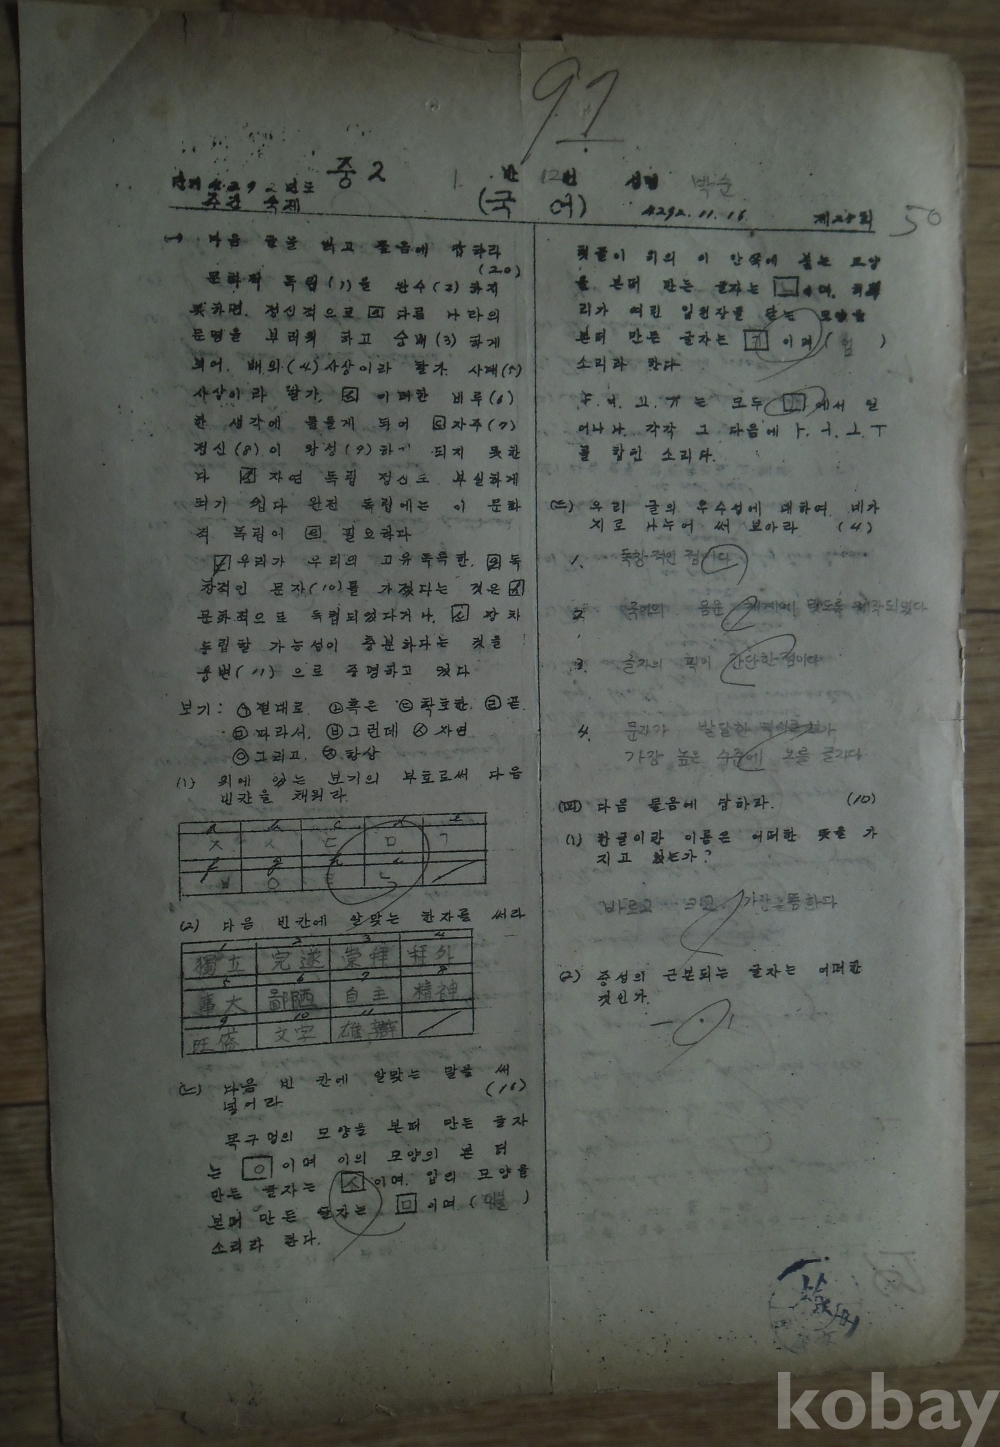 97
단기 4292년도 중2 1반 12번 성명 박순
주간 숙제 (국어) 4292.11.16 제28회 50
(一) 다음 글을 읽고 물음에 답하라
(20)
문화적 독립(1)을 완수(2)하지
못하면, 정신적으로 다른 나라의
문명을 부러워 하고 숭배(3)하게
되어, 배외(4)사상이라 할가 사대(5)
사상이라 할가, 이러한 비루(6)
한 생각에 물들게 되어 자주(7)
정신(8)이 왕성(9)하 되지 못한
다 자연 독립 정신도 부실하게
되기 쉽다 완전 독립에는 이 문화
적 독립이 필요하다
우리가 우리의 고유독특한, 독
창적인 문자(10)를 가졌다는 것은
문화적으로 독립되었다거나, 장차
독립할 가능성이 충분하다는 것을
웅변(11)으로 증명하고 있다
보기: ㉠절대로 ㉡혹은 ㉢확호한, ㉣곧
㉤따라서, ㉥그런데 ㉦자연
㉧그리고, ㉨항상
(1) 위에 있는 보기의 부호로써 다음
빈칸을 채워라
a b c d e
ㅈ ㅅ ㄷ ㅁ ㄱ
f g h i
ㅂ ㅇ ㄹ ㄴ
(2) 다음 빈칸에 알맞는 한자를 써라
1 2 3 4
獨立 完遂 崇拜 拜外
5 6 7 8
事大 鄙陋 自主 精神
9 10 11
旺盛 文字 雄辯
(二) 다음 빈 칸에 알맞는 말을 써
넣어라 (16)
목구멍의 모양을 본떠 만든 글자
는 ㅇ 이며 이의 모양의 본 떠
만든 글자는 ㅅ 이며, 입의 모양을
본떠 만든 글자는 ㅁ 이며 ( )
소리라 한다.
혓끝이 위의 이 안쪽에 붙는 모양
을 본떠 만든 글자는 ㄴ 이며, 혀뿌
리가 여린 입천장을 닫는 모양을
본떠 만든 글자는 ㄱ 이며 ( )
소리라 한다
ㅑ, ㅕ, ㅛ, ㅠ는 모두 에서 일
어나나, 각각 그 다음에 ㅏ, ㅓ, ㅗ, ㅜ
를 합힌 소리다.
(三) 우리 글의 우수성에 대하여 네가
지로 나누어 써 보아라 (4)
1. 독창적인 점이다
2. 음운 체계에 맞도록 제작되었다
3. 글자의 획이 간단한 점이다
4. 문자가 발달한
가장 높은 수준에 글자다
(四) 다음 물음에 답하라. (10)
(1) 한글이란 이름은 어떠한 뜻을 가
지고 있는가?
바르고 크고
(2) 중성의 근본되는 글자는 어떠한
것인가.
ㅡ · ㅣ
kobay